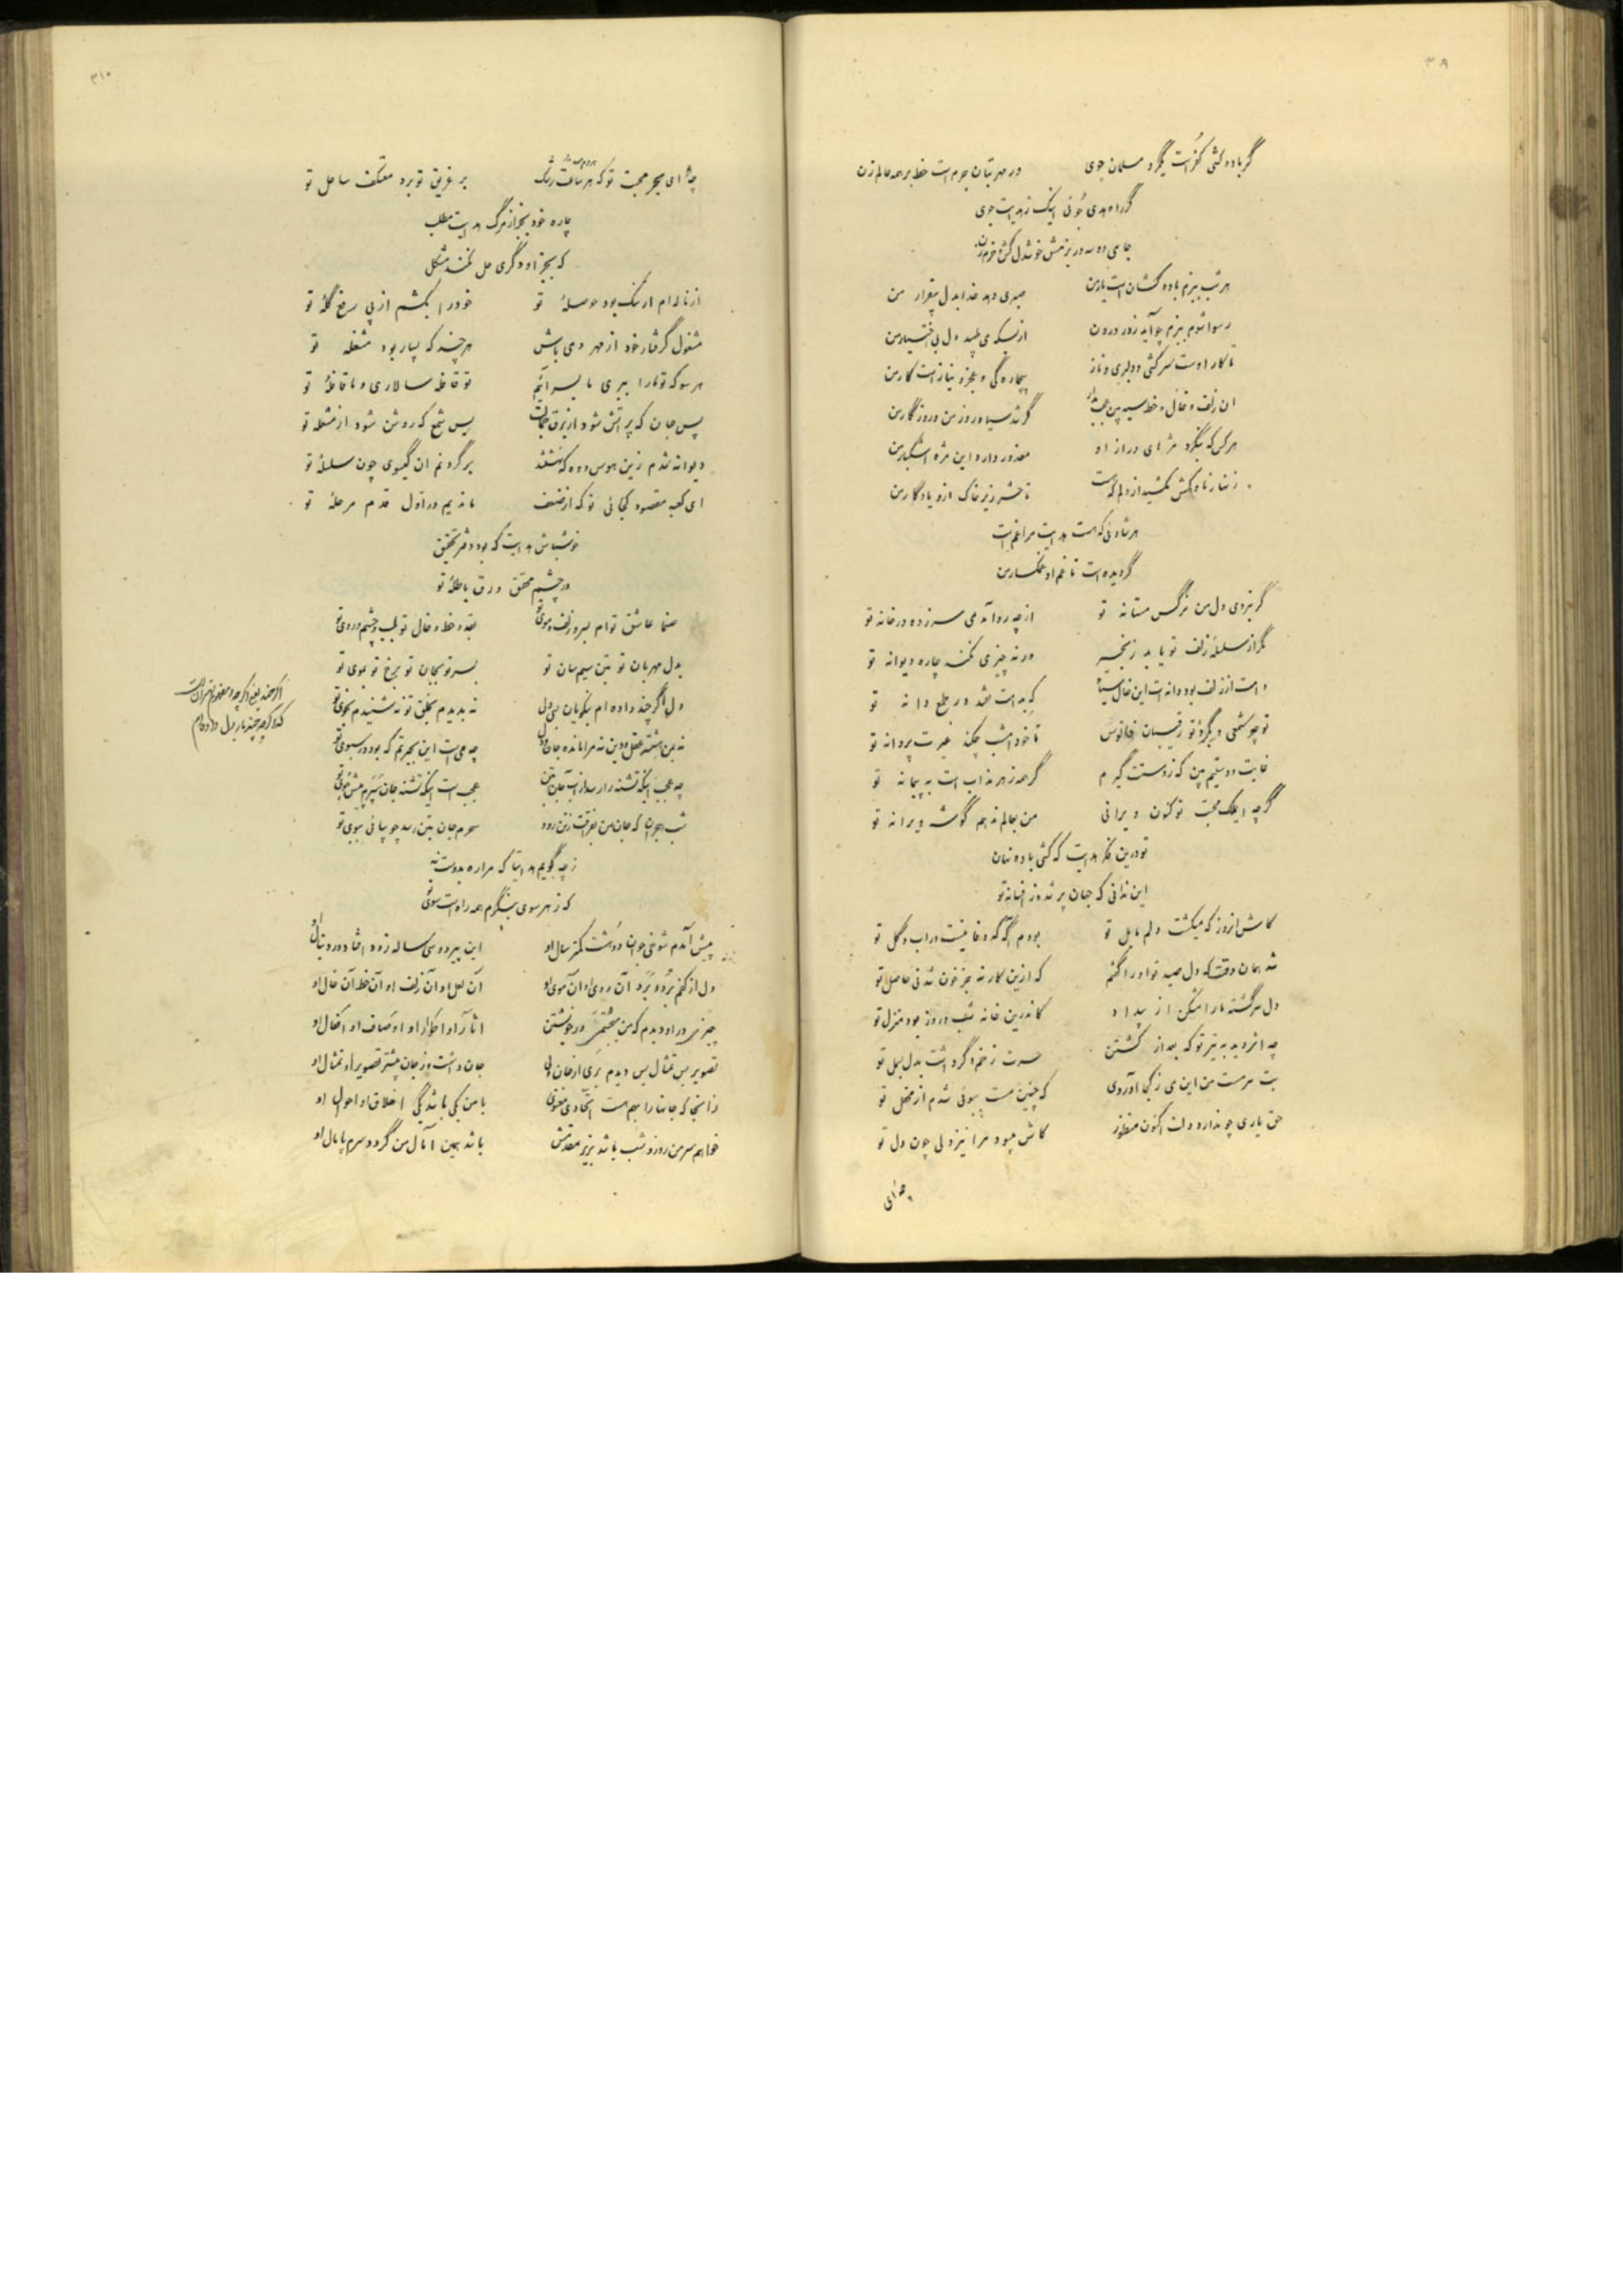 ۳۰۹
گر باده کشی کفر است یگرد مسلمان جوی ور مهر بتان جرم است خط بر همه عالم زن
گر راه هدی جوئی اینک ز هدایت جوی
جامی ده و در بزمش خوشدل کش و خرم زن
هر شب ببزم باده کشان است یار من صبری دهد خدا بدل بیقرار من
رسوا شوم ببزم چو آید ز در درون از بسکه می طپد دل بی اختیار من
تا کار اوست سرکشی و دلبری و ناز بیچاره گی و عجز و نیاز است کار من
ان زلف و خال و خط سیه بین عجب مدار گر شد سیاه روز من و روزگار من
هر کس که بنگرد مژه ای دراز او معذور دارد این مژه اشکبار من
زنهار ناوکش نکشید از دلم که هست تا حشر زیر خاک ازو یادگار من
هر شادئی که هست هدایت مرا غم است
گردیده است تا غم او غمگسار من
گر نبردی دل من نرگس مستانه تو از چه رو آمدمی سرزده در خانه تو
مگر از سلسلهٔ زلف تو یابد زنجیر ورنه چیزی نکند چاره دیوانه تو
دامت از زلف بود دانه ات این خال سیاه که بدامت فتد در طمع دانه تو
تو چو شمعی و بگرد تو رقیبان فانوس تا خود امشب چکند غیرت پروانه تو
غایت دوستیم بین که ز دستت گیرم گر همه زهر مذاب است به پیمانه تو
گرچه ایملک محبت تو کنون ویرانی من بعالم ندهم گوشه ویرانه تو
تو درین فکر هدایت که کشی باده نهان
این ندانی که جهان پر شده ز افسانه تو
کاش انروز که میگشت دلم مایل تو بودم آگه که وفا نیست در اب و گل تو
شد همان وقت که دل صید تو او را گفتم که ازین کار نه جز خون شدنی حاصل تو
دل سرگشته ما را مشکن از بیداد کاندرین خانه شب و روز بود منزل تو
چه اثر دید به تیر تو که بعد از کشتن حسرت زخم دگر داشت بدل بسمل تو
بت سرمست من این می ز کجا آوردی که چنین مست ببوئی شدم از محفل تو
حق یاری چو ندارد دلت اکنون منظور کاش میبود مرا نیز دلی چون دل تو
چه ای
۳۱۰
چه ای بحر محبت تو که هر ساعت رشک بر غریق تو برد معتکف ساحل تو
چاره خود بجز از مرگ هدایت مطلب
که بجز او دگری حل نکند مشکل تو
از ناله ام ار تنگ بود حوصلهٔ تو خود را بکشم از پی رفع گلهٔ تو
مشغول گرفتار خود از مهر دمی باش هر چند که بسیار بود مشغلهٔ تو
هر سو که تو ما را ببری ما بسر آئیم تو قافله سالاری و ما قافلهٔ تو
پس جان که پر اتش شود از برق بس شمع که روشن شود از مشعلهٔ تو
دیوانه شدم زین هوس و ده که نیفتد بر گردنم ان گیسوی چون سلسلهٔ تو
ای کعبه مقصود کجائی تو که از ضعف ماندیم در اول قدم مرحلهٔ تو
خوشباش هدایت که بود دفتر تحقیق
در چشم محقق ورق باطلهٔ تو
صنما عاشق توام بسر و زلف و موی تو بقد و خط و خال تو بلب و چشم و روی تو
بدل مهربان تو بتن سیم سان تو بسر تو بجان تو برخ تو بموی تو
دل اگر چند داده ام بنکویان بسی ولی نه بدیدم بخلق تو نه شنیدم بخوی تو
نه بمن هشته عقل و دین نه مرا مانده جان و دل چه می است این بحیرتم که بود در سبوی تو
چه عجب اینکه تشنه را رسد از اب جان بتن عجب است اینکه تشنه جان سپرم پیش جوی تو
شب هجران که جان من بفراقت ز تن رود سحرم جان بتن رسد چو بیائی ببوی تو
ز چه گویم هدایتا که مرا ره بدوست نه
که ز هر سوی بنگرم همه راه است سوی تو
پیش آمدم شوخی جوان دو هشت کمتر سال او این پیرو سی ساله زود افتاد در دنبال او
دل از کفم برد و برد آن روی او آن موی او آن لعل او آن زلف او آن خط آن خال او
چیزی در او دیدم که من میجستمش در خویشتن اثار او اطوار او اوصاف او افعال او
تصویر بس تمثال بس دیدم بری از جان ولی جان داشت و ز جان بیشتر تصویر او تمثال او
زانجا که جانها را بهم هست اتحادی معنوی با من یکی باشد یکی اخلاق او احوال او
خواهم سر من روز و شب باشد بزیر مقدمش باشد همین آمال من گردد سرم پامال او